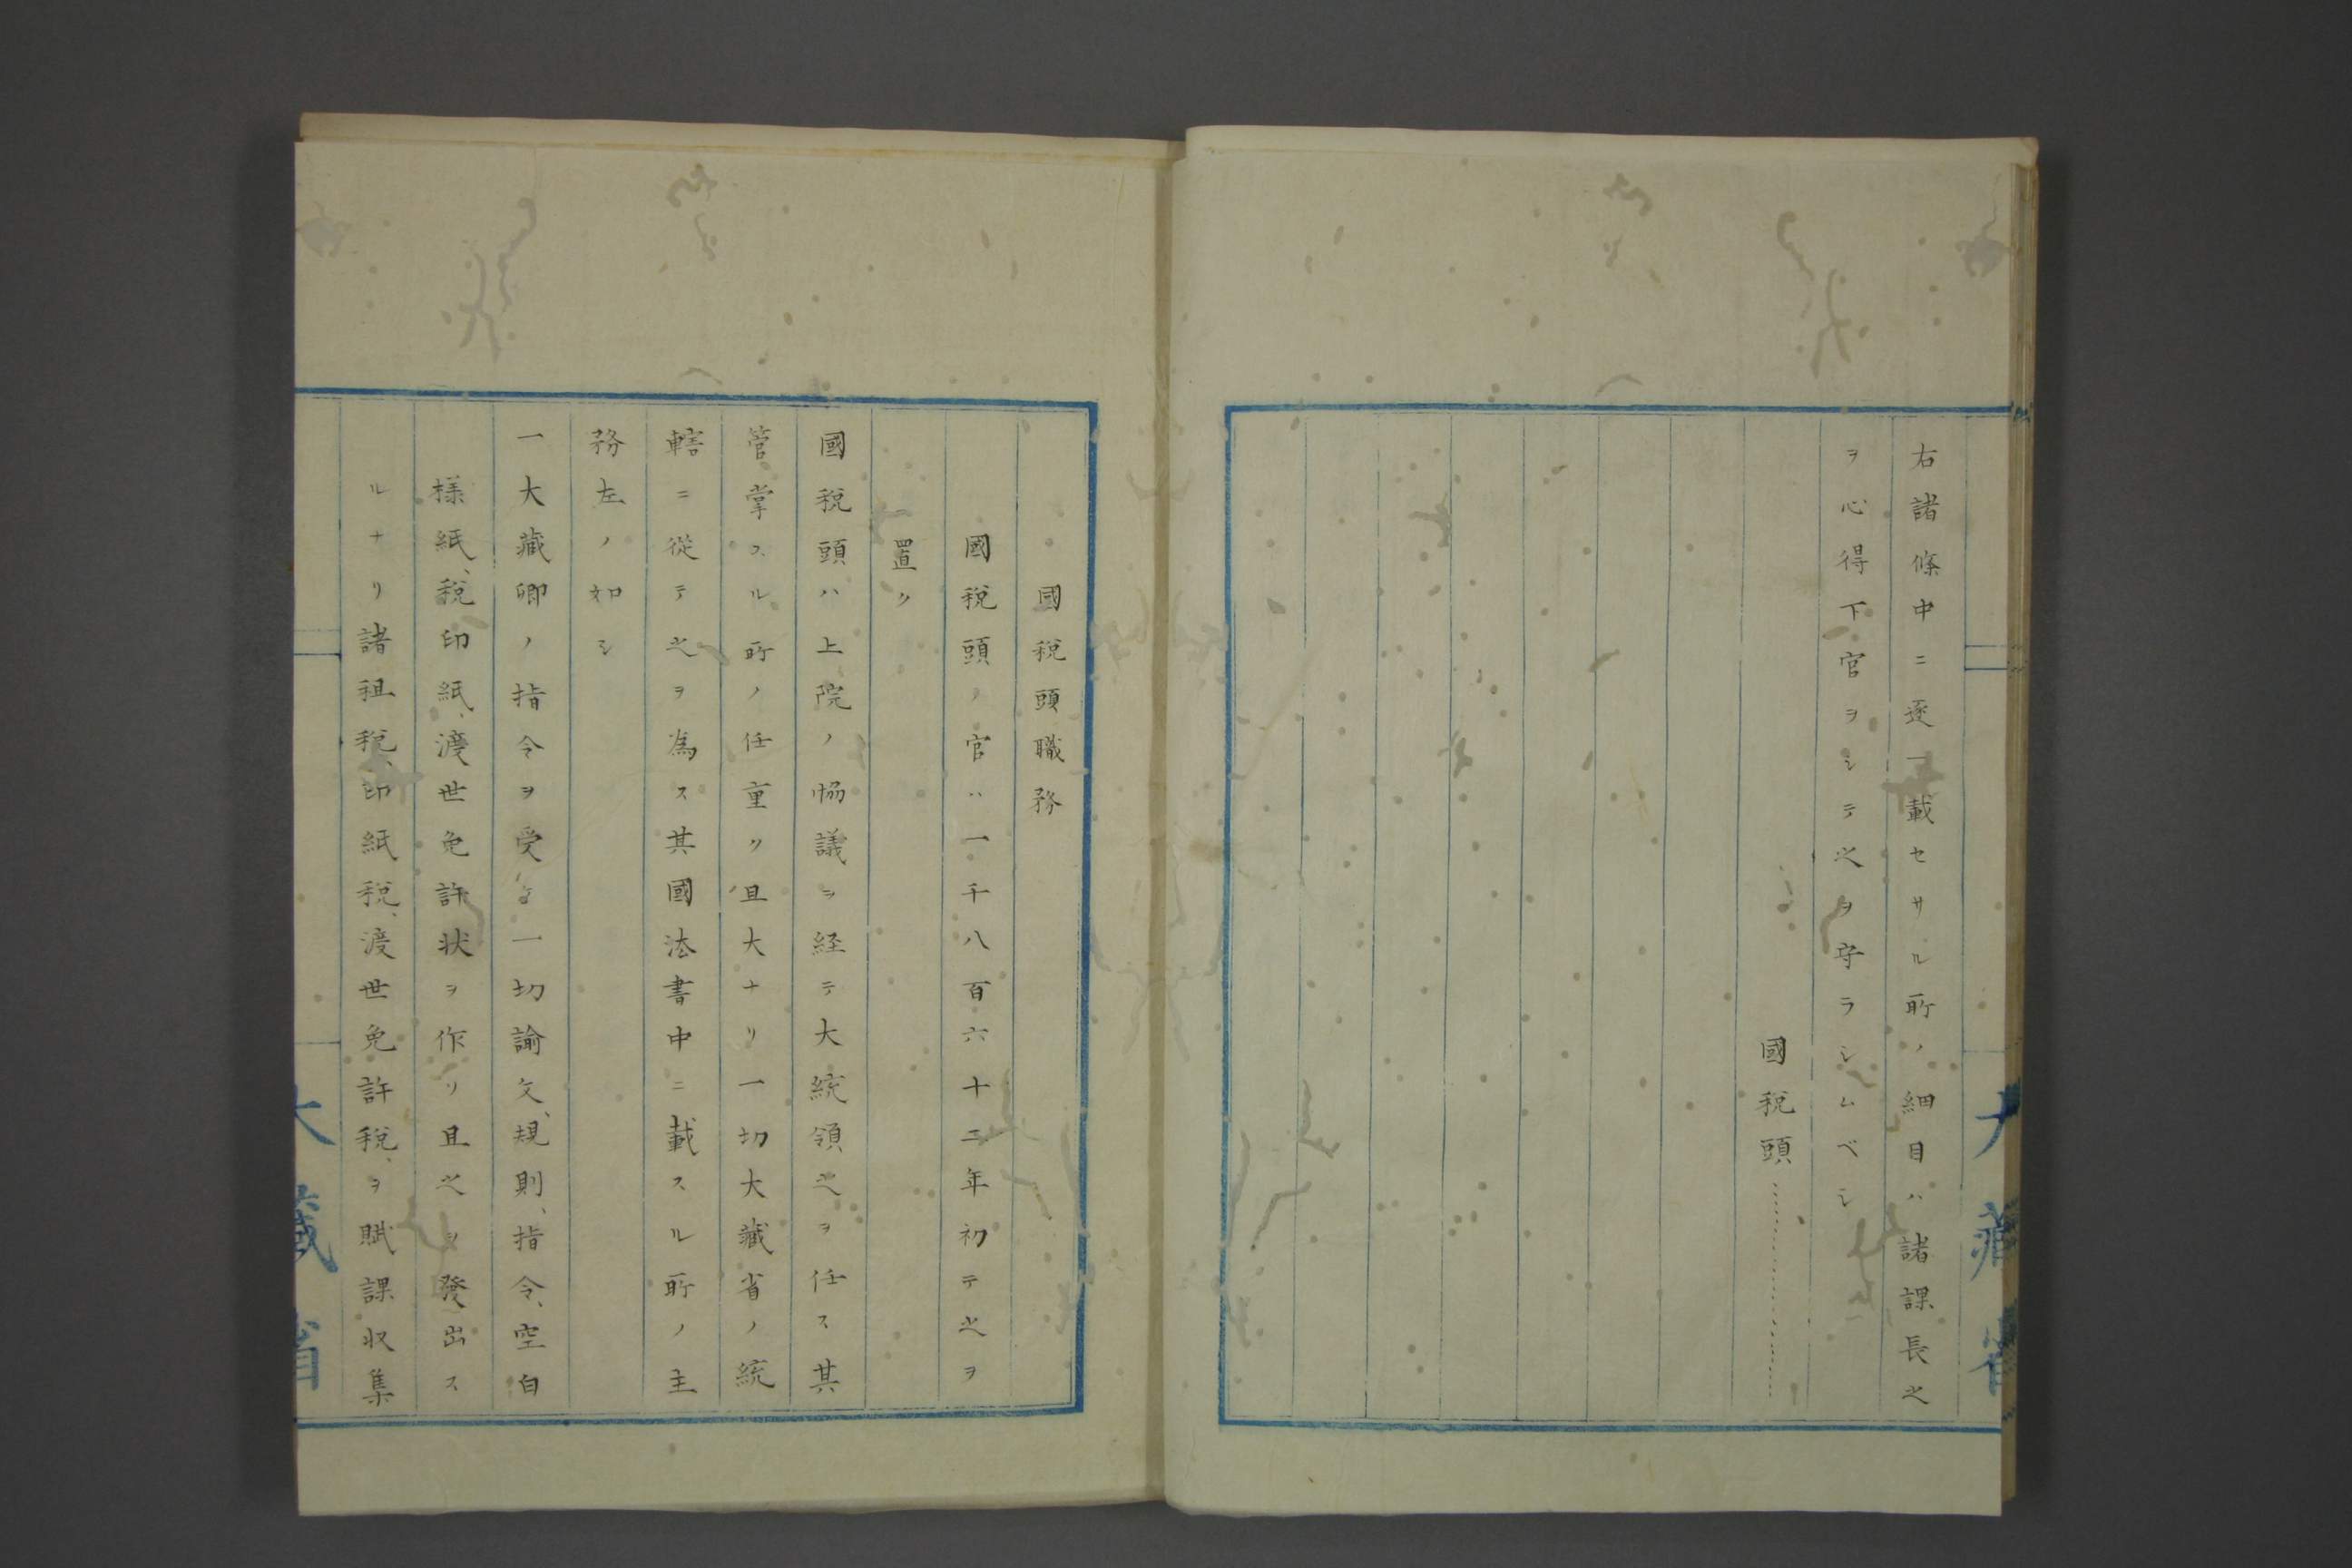 右諸條中ニ逐一載セサル所ノ細目ハ諸課長之
ヲ心得下官ヲシテ之ヲ守ラシムベシ
國税頭
大藏省
國税頭職務
國税頭ノ官ハ一千八百六十二年初テ之ヲ
置ク
國税頭ハ上院ノ恊議ヲ経テ大統領之ヲ任ス其
管掌スル所ノ任重ク且大ナリ一切大藏省ノ統
轄ニ從テ之ヲ為ス其國法書中ニ載スル所ノ主
務左ノ如シ
一大藏卿ノ指令ヲ受ケ一切諭文、規則、指令、空白
様紙、税印紙、渡世免許状ヲ作リ且之ヲ發出ス
ルナリ諸租税、印紙税、渡世免許税、ヲ賦課収集
大藏省